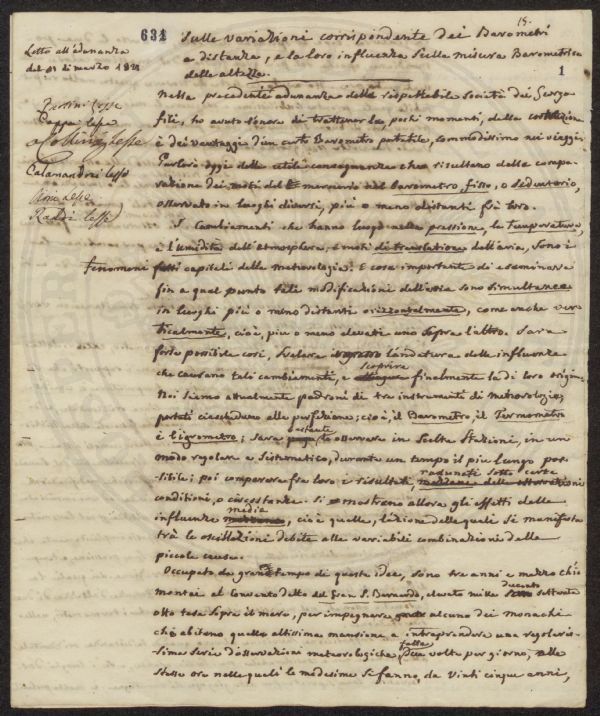 15.
631
Sulle variazioni corrispondente dei Barometri
a distanza, e la loro influenza sulla misura Barometrica
delle altezze.
1
Letto all'adunanza
del di marzo 1821
Pezzini lesse
Cappa lesse
lesse
Calamandrei lesse
lesse
Raddi lesse
Nella precedente adunanza della rispettabile Società dei Georgo
fili, ho avuto l'onore di trattenerla, pochi momenti, della costruzione
e dei vantaggi d'un certo Barometro portatile, commodissimo nei viaggi.
Parlerò oggi delle utili conseguenze che risultano dalla compa-
razione dei moti del mercurio nel Barometro, fisso, o sedentario,
osservato in luoghi diversi, più o meno distanti fra loro.
I Cambiamenti che hanno luogo nella pressione, la temperatura,
e l'umidità dell'Atmosfera, e moti di translazione dell'aria, sono i
fenomeni fatti capitali della meteorologia: È cosa importante di esaminare
fin a qual punto tali modificazione dell'aria sono simultanee,
in luoghi più o meno distanti orizzontalmente, come anche ver
ticalmente, cioè, più o meno elevati uno sopra l'altro. Sara
forse possibile così, svelare l'andatura delle influenze
che causano tali cambiamenti, e scoprire finalmente la di loro origine.
Noi siamo attualmente padroni di tre instrumenti di meteorologia,
portati ciascheduno alla perfezione; cioè, il Barometro, il Termometro
e l'igrometro; sara bastante lo osservare in scelte stazioni, in un
modo regolare e sistematico, durante un tempo il più lungo pos-
sibile; poi comparare fra loro i risultati, radunati sotto certe
condizioni, o circostanze. Si mostrano allora gli effetti delle
influenze media, cioè quelle, l'azione delle quali si manifesta
trà le oscillazioni debite alle variabili combinazioni delle
piccole cause.
Occupato da gran tempo di queste idee, sono tre anni e mezzo ch'io
montai al Convento detto del Gran S. Bernardo, elevato mille duecento settanta
otto tese sopra il mare, per impegnare alcuno dei monachi
che abitano quella altissima mansione a intraprendere una regolaris-
sima serie d'osservazioni meteorologiche fatte due volte per giorno, alle
stesse ore nelle quali le medesime si fanno, da vinti cinque anni,